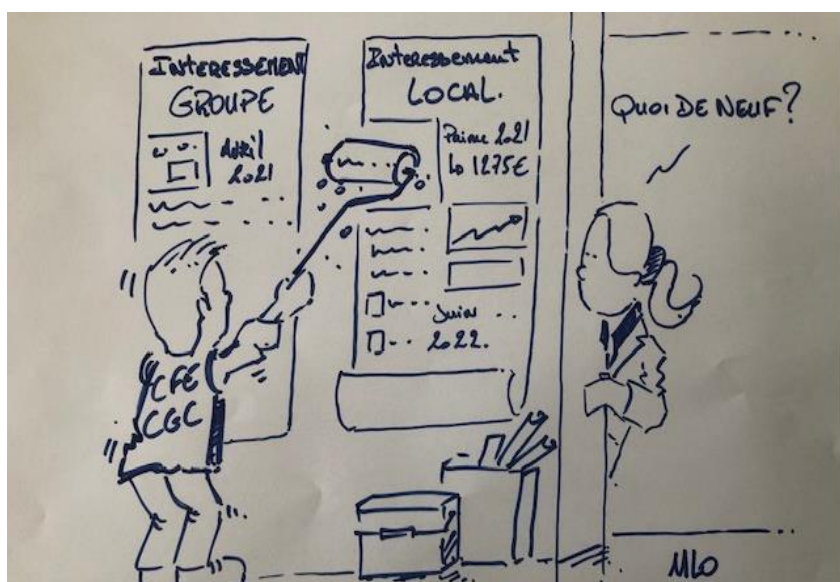 INTERESSEMENT
GROUPE
Avril
2021
Interessement
LOCAL.
Prime 2021
1275€
Juin ..
2022.
QUOI DE NEUF?
CFE
CGC
MLO